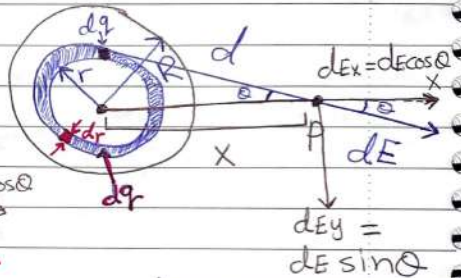 dq
d
R
r
dEx=dEcosθ
x
θ
θ
dr
P
dE
X
osθ
dq
dEy =
dE sinθ